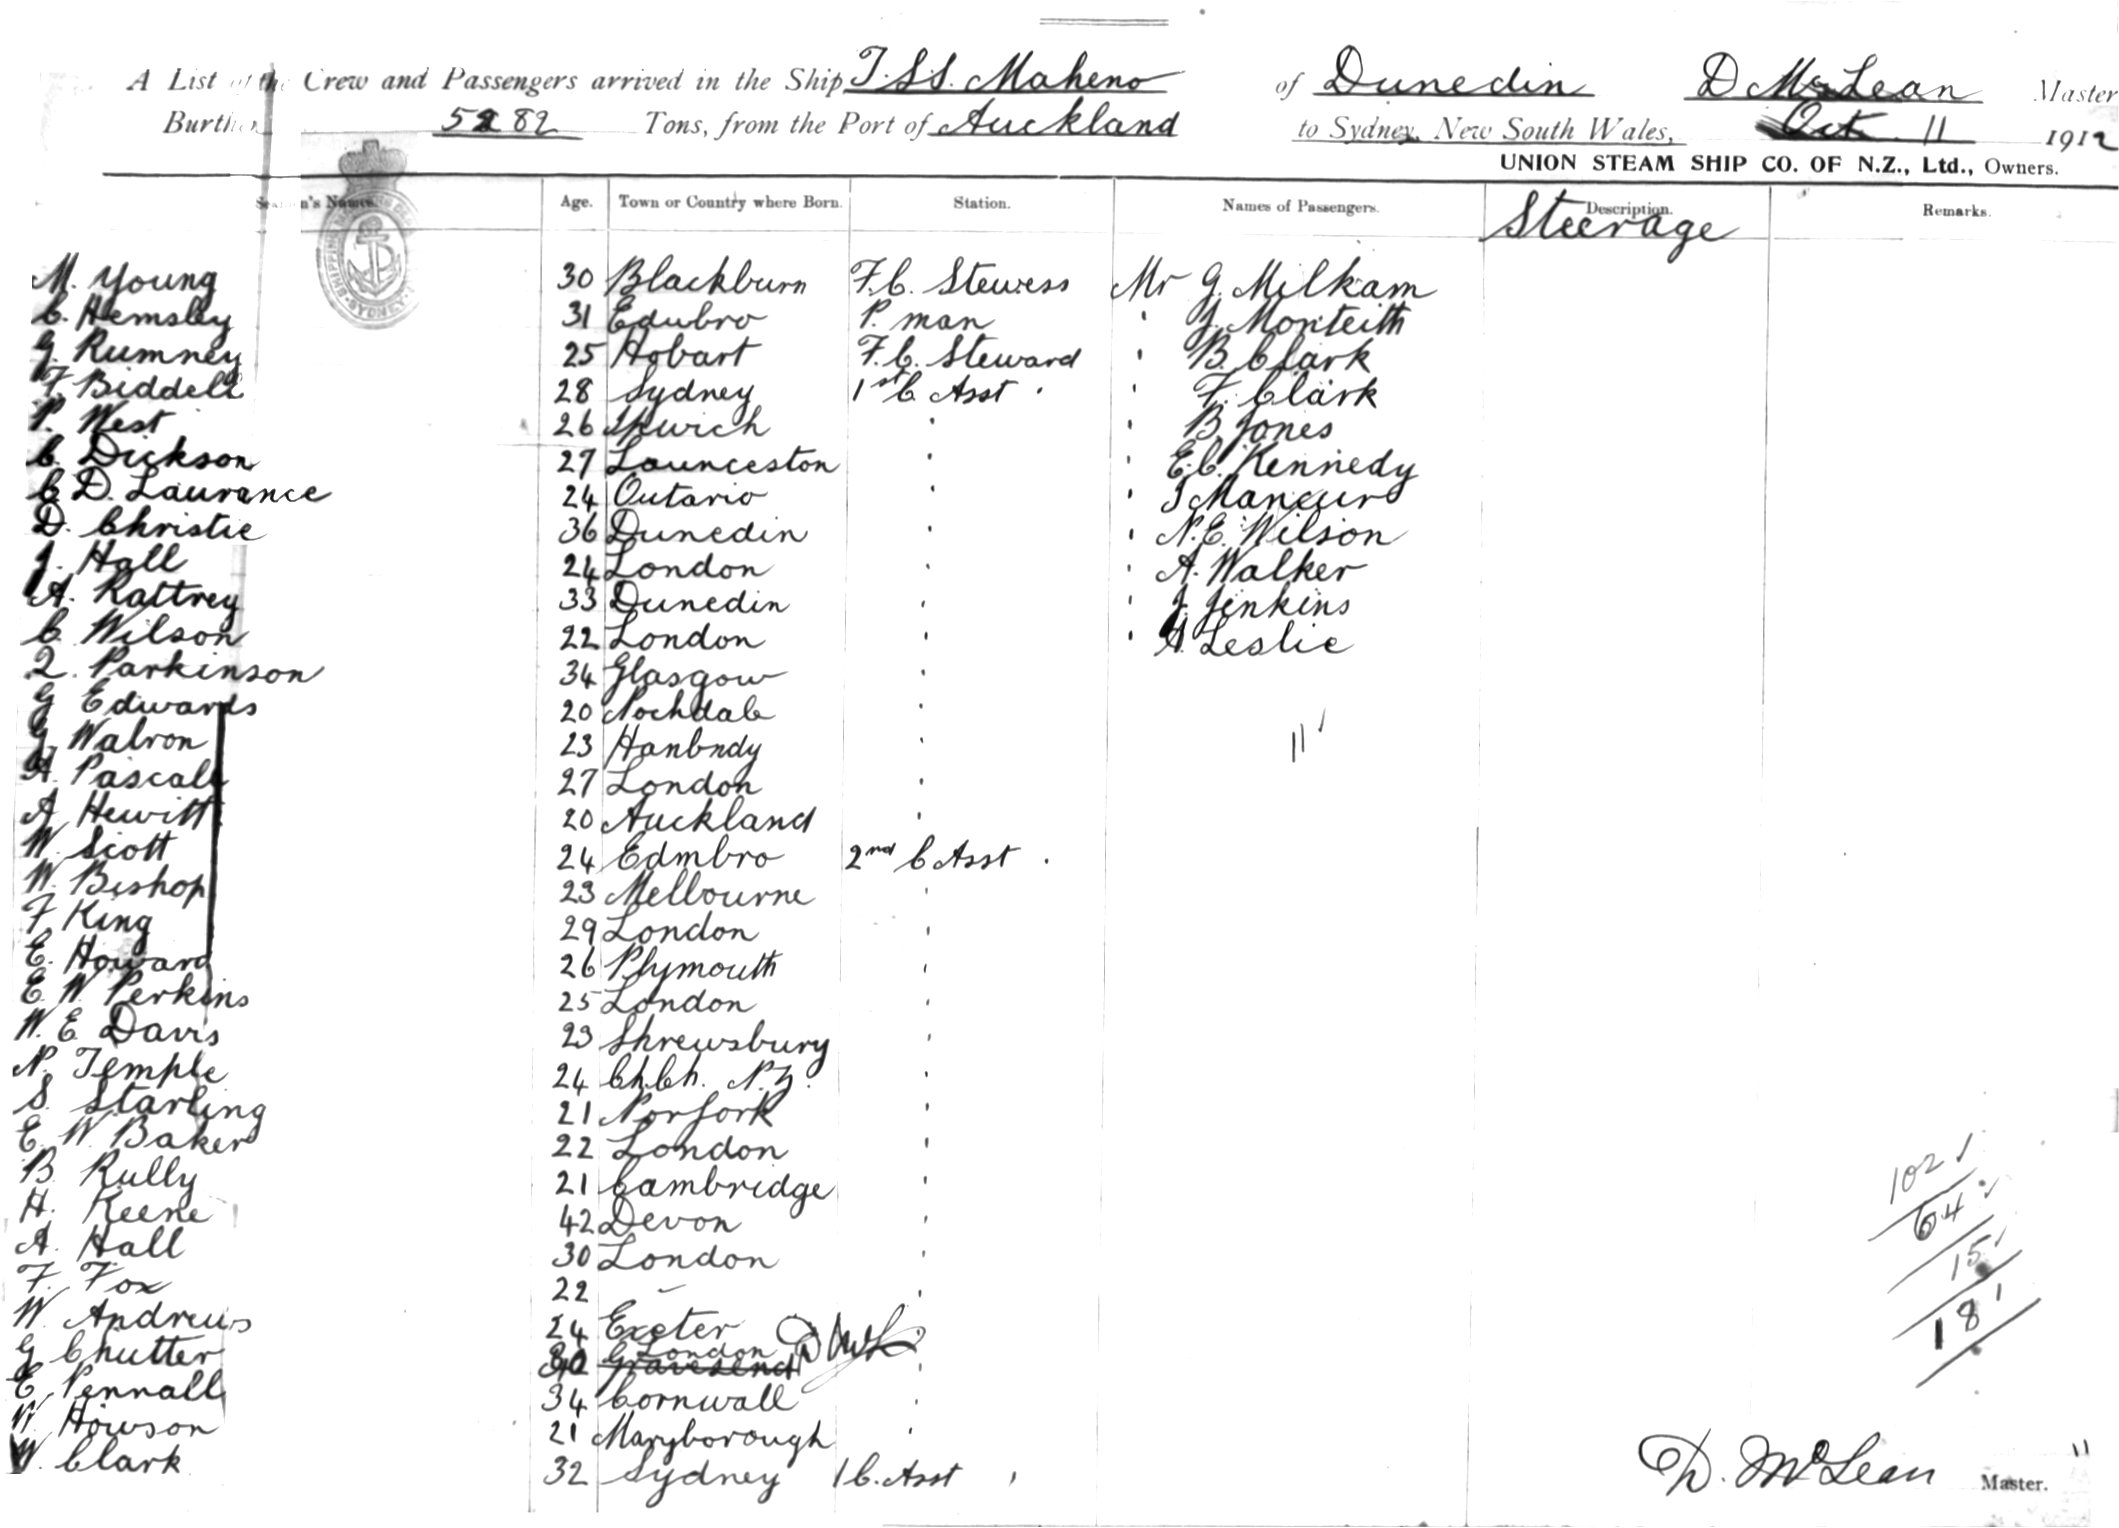 A List of the Crew and Passengers arrived in the Ship T.S.S. Maheno of Dunedin D McLean Master
Burthen 5282 Tons, from the Port of Auckland to Sydney, New South Wales, Oct 11 1912
UNION STEAM SHIP CO. OF N.Z., Ltd., Owners.
Seamen's Names. Age. Town or Country where Born. Station. Names of Passengers. Description. Remarks.
Steerage
M. Young 30 Blackburn F.C. Stewess Mr G. Milkam
C. Hemsley 31 Edubro P. man ' J. Monteith
G. Rumney 25 Hobart F.C. Steward ' B. Clark
F. Biddell 28 Sydney 1st C Asst ' F. Clark
P. West 26 Ipswich ' ' B. Jones
C. Dickson 27 Launceston ' ' E.C. Kennedy
C. D. Laurance 24 Ontario ' ' J Mancur
D. Christie 36 Dunedin ' ' N.E. Wilson
J. Hall 24 London ' ' A. Walker
A. Rattrey 33 Dunedin ' ' J. Jenkins
C. Wilson 22 London ' ' A. Leslie
Q. Parkinson 34 Glasgow '
G Edwards 20 Rochdale '
G. Walron 23 Hanbndy ' 11
A. Pascall 27 London '
A Hewitt 20 Auckland '
W Scott 24 Edmbro 2nd C Asst
W. Bishop 23 Melbourne '
F King 29 London '
E. Howard 26 Plymouth '
E. W Perkins 25 London '
W. E Davis 23 Shrewsbury '
N. Temple 24 Ch.Ch. N.Z. '
S. Starling 21 Norfork '
E. W Baker 22 London '
B. Rully 21 Cambridge ' 102
H. Keene 42 Devon ' 64
A. Hall 30 London ' 15
F. Fox 22 " '
W. Andrews 24 Exeter ' 181
G Chutter 30 London Gravesend DMcL '
E Pennall 34 Cornwall '
W. Howson 21 Maryborough '
W. Clark 32 Sydney 1 C. Asst
D. McLean Master.